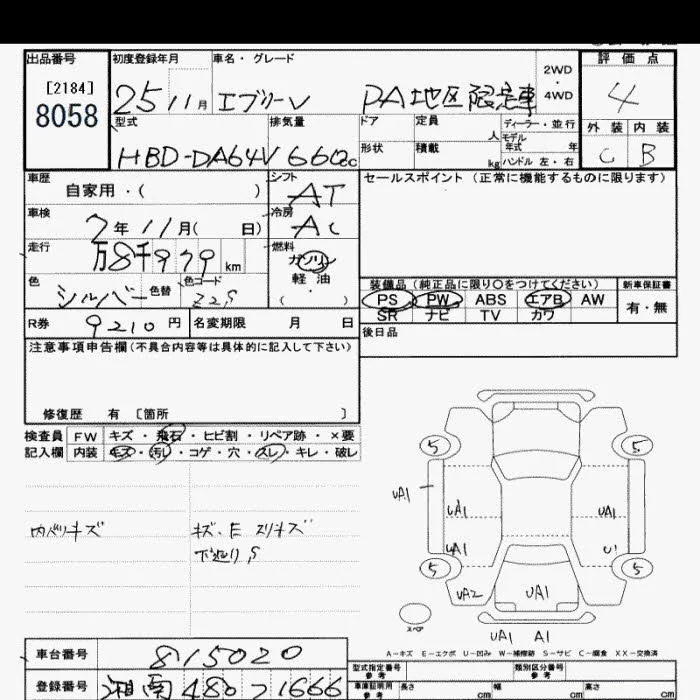 出品番号 初度登録年月 車名・グレード 評価点
[2184]
8058
25 11月 エブリーV PA地区限定車 2WD・4WD 4
型式 排気量 ドア 定員 人 ディーラー・並行 外装 内装
HBD-DA64V 660cc 形状 積載 kg モデル年式 年 ハンドル 左・右 C B
車歴 自家用・( ) シフト AT セールスポイント(正常に機能するものに限ります)
車検 7年11月( 日) 冷房 AC
走行 万8千979km 燃料 ガソリン
軽油
・( )
色 シルバー 色替 色コード Z2S
装備品(純正品に限り○をつけてください) 新車保証書
PS PW ABS エアB AW 有・無
SR ナビ TV カワ
R券 9210円 名変期限 月 日 後日品
注意事項申告欄(不具合内容等は具体的に記入して下さい)
修復歴 有 〔箇所 〕
検査員 FW キズ・飛石・ヒビ割・リペア跡・×要
記入欄 内装 キズ・汚レ・コゲ・穴・スレ・キレ・破レ
内ベリキズ キズ、E スリキズ
下廻りS
5 5
UA1
UA1 UA1
UA1 U1
5 5
UA2 UA1
スペア
UA1 A1
A-キズ E-エクボ U-凹み W-補修跡 S-サビ C-腐食 XX-交換済
車台番号 815020
型式指定番号 参考 類別区分番号 参考
登録番号 湘南 480 1666
車庫証明用 参考 長さ cm 幅 cm 高さ cm